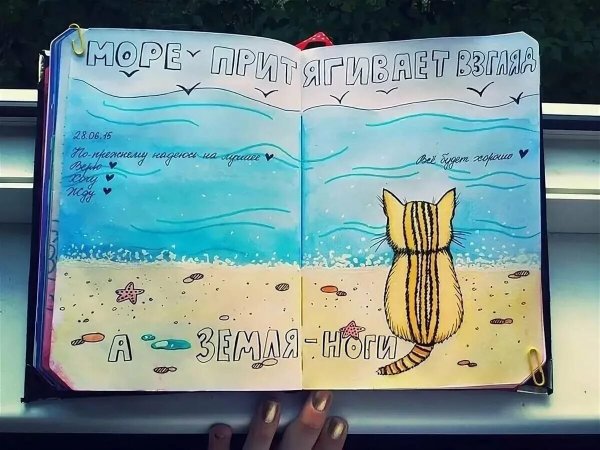 МОРЕ ПРИТЯГИВАЕТ ВЗГЛЯД
28.06.15
По-прежнему надеюсь на лучшее
Верю
Хочу
Жду
Всё будет хорошо
А ЗЕМЛЯ-НОГИ